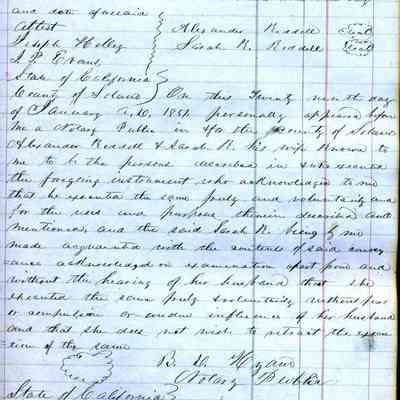 and date aforesaid
Attest Alexander Riddell Seal
Joseph Holley Sarah R. Riddell Seal
J. P. Evans
State of California
County of Solano On this Twenty ninth day
of January A.D. 185 personally appeared before
me a Notary Public in & for the County of Solano
Alexander Riddell & Sarah R. his wife Known to
me to be the persons described in & who executed
the forgoing instrument who acknowledged to me
that he executed the same freely and voluntarily and
for the uses and purposes therein described and
mentioned, and the said Sarah R. being by me
made acquainted with the contents of said convey
ance acknowledged on examination apart from and
without the hearing of her husband that she
executed the same freely & voluntarily without fear
or compulsion or undue influence of her husband
and that she does not wish to retract the execu
tion of the same
B. D. Hyam
Notary Public
State of California